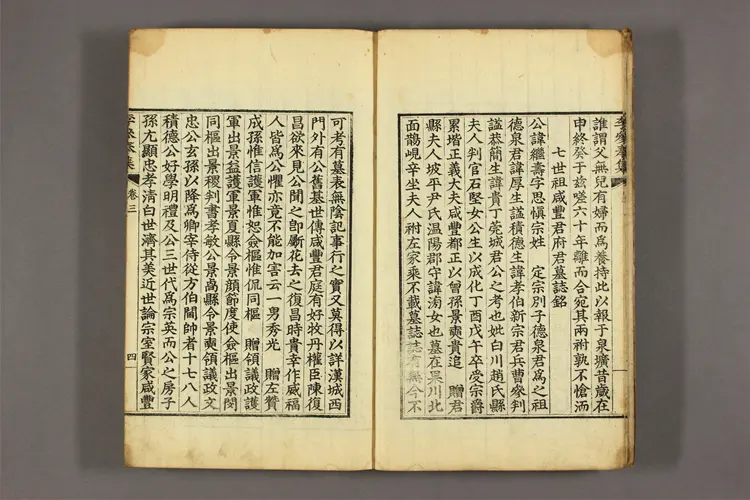 誰謂父無兒有婦而爲養持此以報于泉壙昔歲在
申終癸于玆嗟六十年離而合宛其兩祔孰不愴洏
七世祖咸豐君府君墓誌銘
公諱繼壽字思愼宗姓 定宗別子德泉君爲之祖
德泉君諱厚生謚積德生諱孝伯新宗君兵曹參判
謚恭簡生諱貴丁莞城君公之考也妣白川趙氏縣
夫人判官石堅女公生以成化丁酉戊午卒受宗爵
累揩正義大夫咸豐都正以曾孫景奭貴追 贈君
縣夫人坡平尹氏温陽郡守諱洊女也墓在果川北
面鵲峴辛坐夫人祔左家乘不載墓誌誌有無今不
可考有墓表無陰記事行之實又莫得以詳漢城西
門外有公舊基世傳咸豐君庭有好牧丹權臣陳復
昌欲來見公聞之卽斸花去之復昌時貴幸作威福
人皆爲公懼亦竟不能加害云一男秀光 贈左贊
成孫惟信護軍惟恕僉樞惟侃同樞 贈領議政護
軍出景益護軍景夏縣令景顔節度使僉樞出景閔
同樞出景稷判書孝敏公景卨縣令景奭領議政文
忠公玄孫以降爲卿宰侍從方伯閫帥者十七八人
積德公好學明禮及公三世代爲宗英而公之房子
孫尤顯忠孝清白世濟其美近世論宗室賢家咸豐
卷三
四